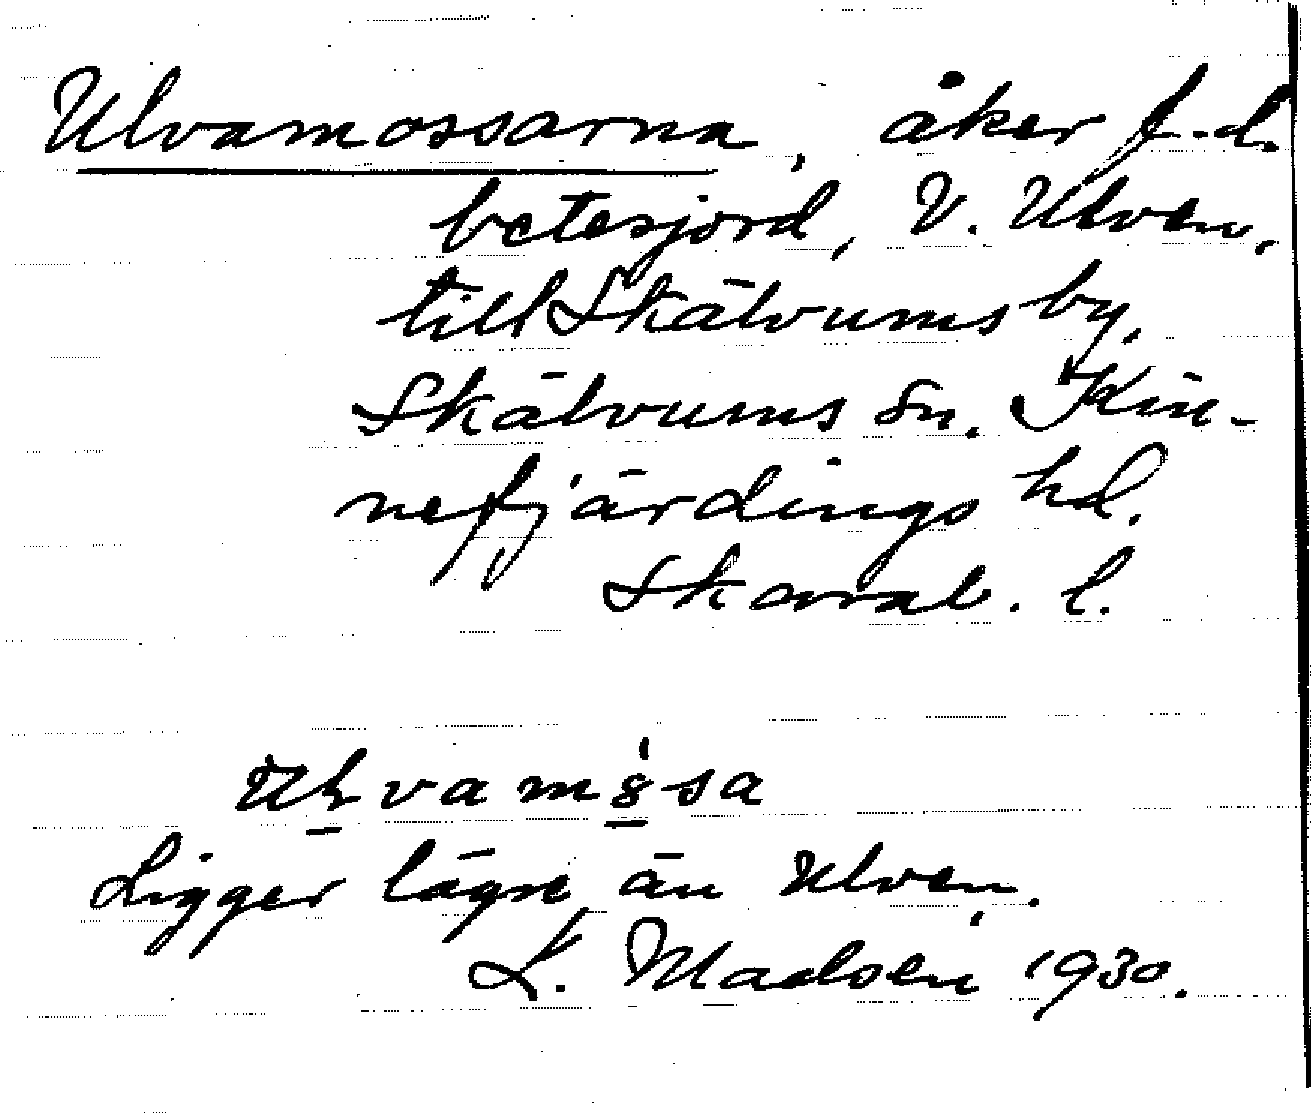 Ulvamossarna, åker f.d.
betesjord, V. Ulven,
till Skälvums by,
Skälvums sn. Kin-
nefjärdings hd.
Skarab. l.
Ligger lägre än Ulven.
1930.